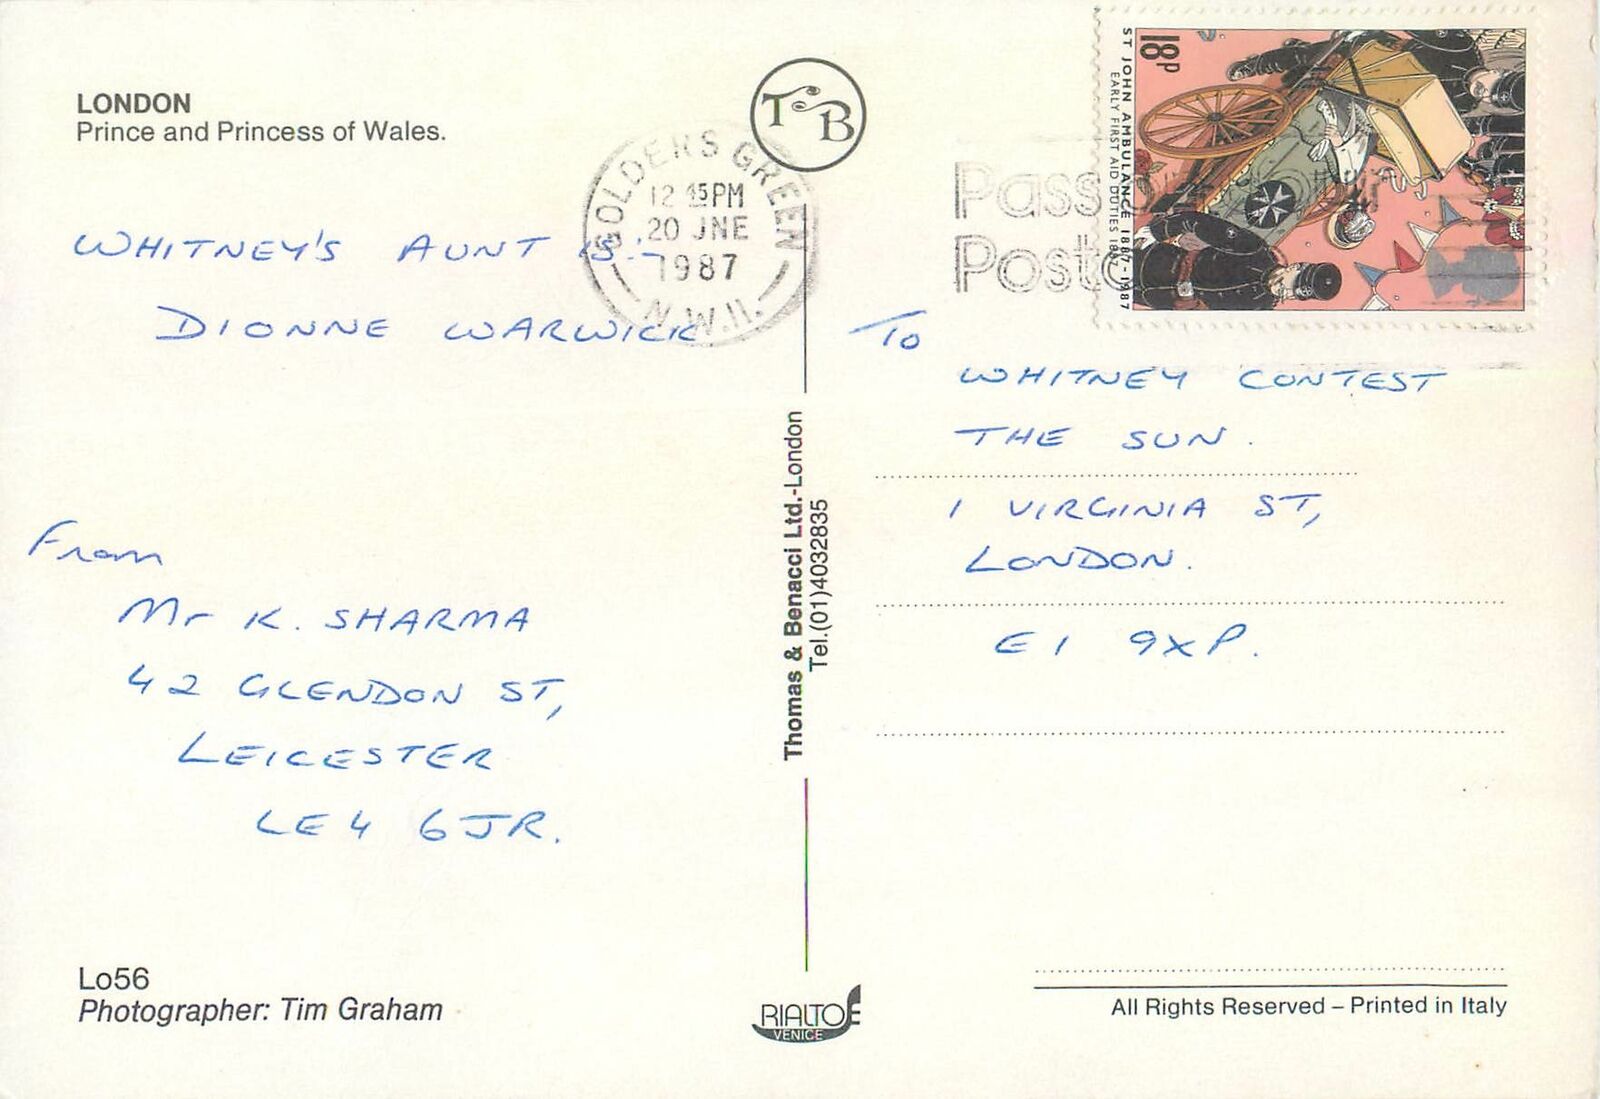 LONDON
Prince and Princess of Wales.
T B
GOLDERS GREEN
12 45 PM
20 JNE
1987
N.W.11.
18P
ST JOHN AMBULANCE 1887-1987
EARLY FIRST AID DUTIES 1887
WHITNEY'S AUNT IS:-
DIONNE WARWICK
From
Mr K. SHARMA
42 GLENDON ST,
LEICESTER
LE4 6JR.
Thomas & Benacci Ltd.-London
Tel.(01)4032835
To
WHITNEY CONTEST
THE SUN.
1 VIRGINIA ST,
LONDON.
E1 9XP.
Lo56
Photographer: Tim Graham
RIALTO
VENICE
All Rights Reserved – Printed in Italy